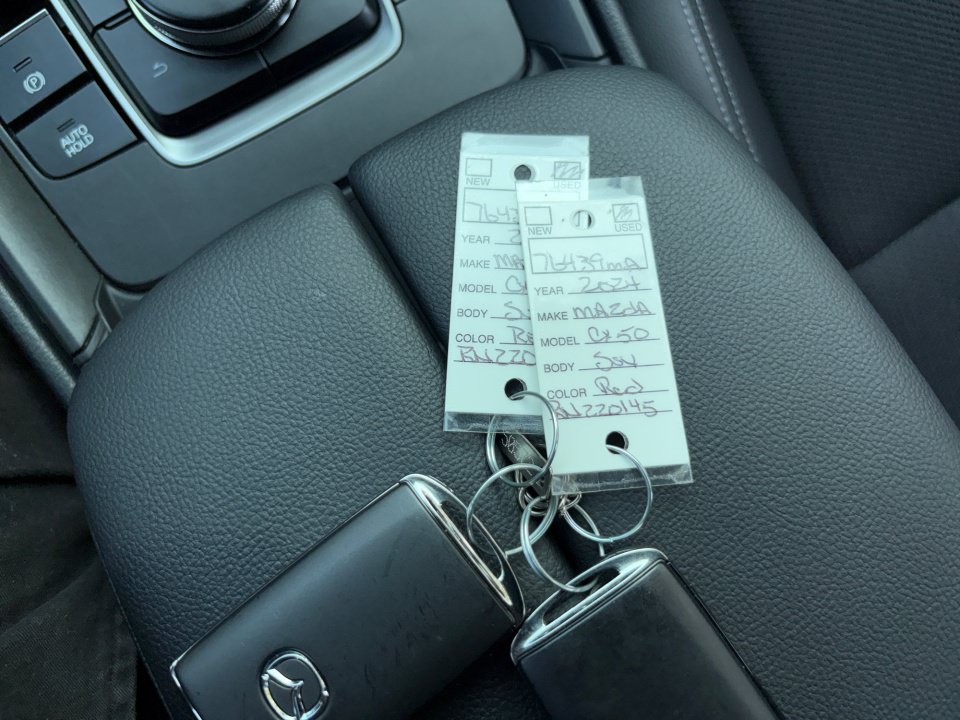 AUTO
HOLD
NEW USED
7643
YEAR 2
MAKE MA
MODEL C
BODY S
COLOR Re
RN220
NEW USED
76439MA
YEAR 2024
MAKE MAZdA
MODEL CX50
BODY SUV
COLOR Red
RN220145